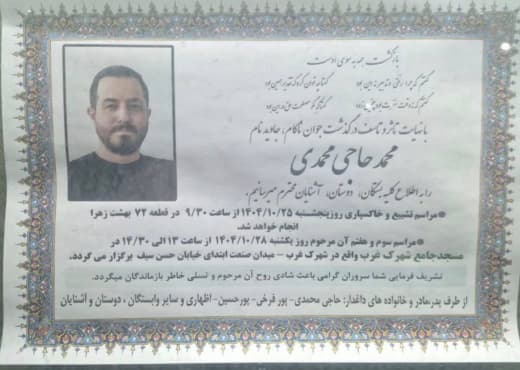 بازگشت همه به سوی اوست
گفتم که چرا رفتی و تدبیر تو این بود
گفتا چه توان کرد که تقدیر همین بود
گفتم که نه وقت سفرت بود چنین زود
گفتا که مگو مصلحت حق در این بود
با نهایت تاثر و تاسف درگذشت جوان ناکام، جاوید نام
محمد حاجی محمدی
را به اطلاع کلیه بستگان، دوستان، آشنایان محترم میرسانیم.
●مراسم تشییع و خاکسپاری روزپنجشنبه ۱۴۰۴/۱۰/۲۵ از ساعت ۹/۳۰ در قطعه ۷۲ بهشت زهرا
انجام خواهد شد.
●مراسم سوم و هفتم آن مرحوم روز یکشنبه ۱۴۰۴/۱۰/۲۸ از ساعت ۱۳ الی ۱۴/۳۰ در
مسجدجامع شهرک غرب واقع در شهرک غرب - میدان صنعت ابتدای خیابان حسن سیف برگزار می گردد.
تشریف فرمایی شما سروران گرامی باعث شادی روح آن مرحوم و تسلی خاطر بازماندگان میگردد.
از طرف پدر،مادر و خانواده های داغدار: حاجی محمدی- پور فرخی- پورحسین- اظهاری و سایر وابستگان ، دوستان و آشنایان